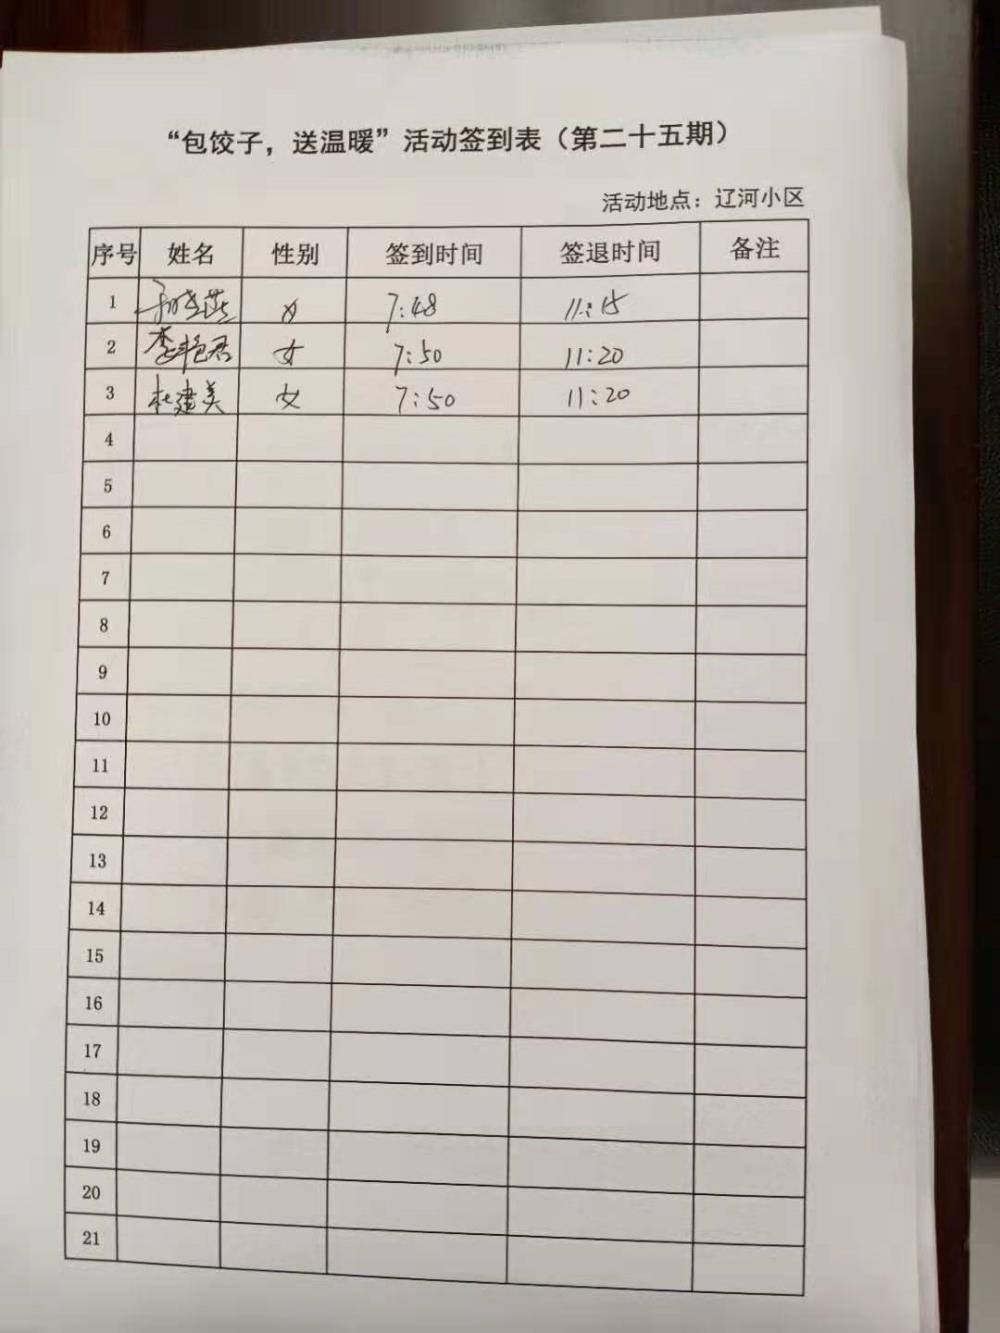 “包饺子，送温暖”活动签到表（第二十五期）
活动地点：辽河小区
序号 姓名 性别 签到时间 签退时间 备注
1 女 7:48 11:15
2 李艳君 女 7:50 11:20
3 杜建美 女 7:50 11:20
4
5
6
7
8
9
10
11
12
13
14
15
16
17
18
19
20
21